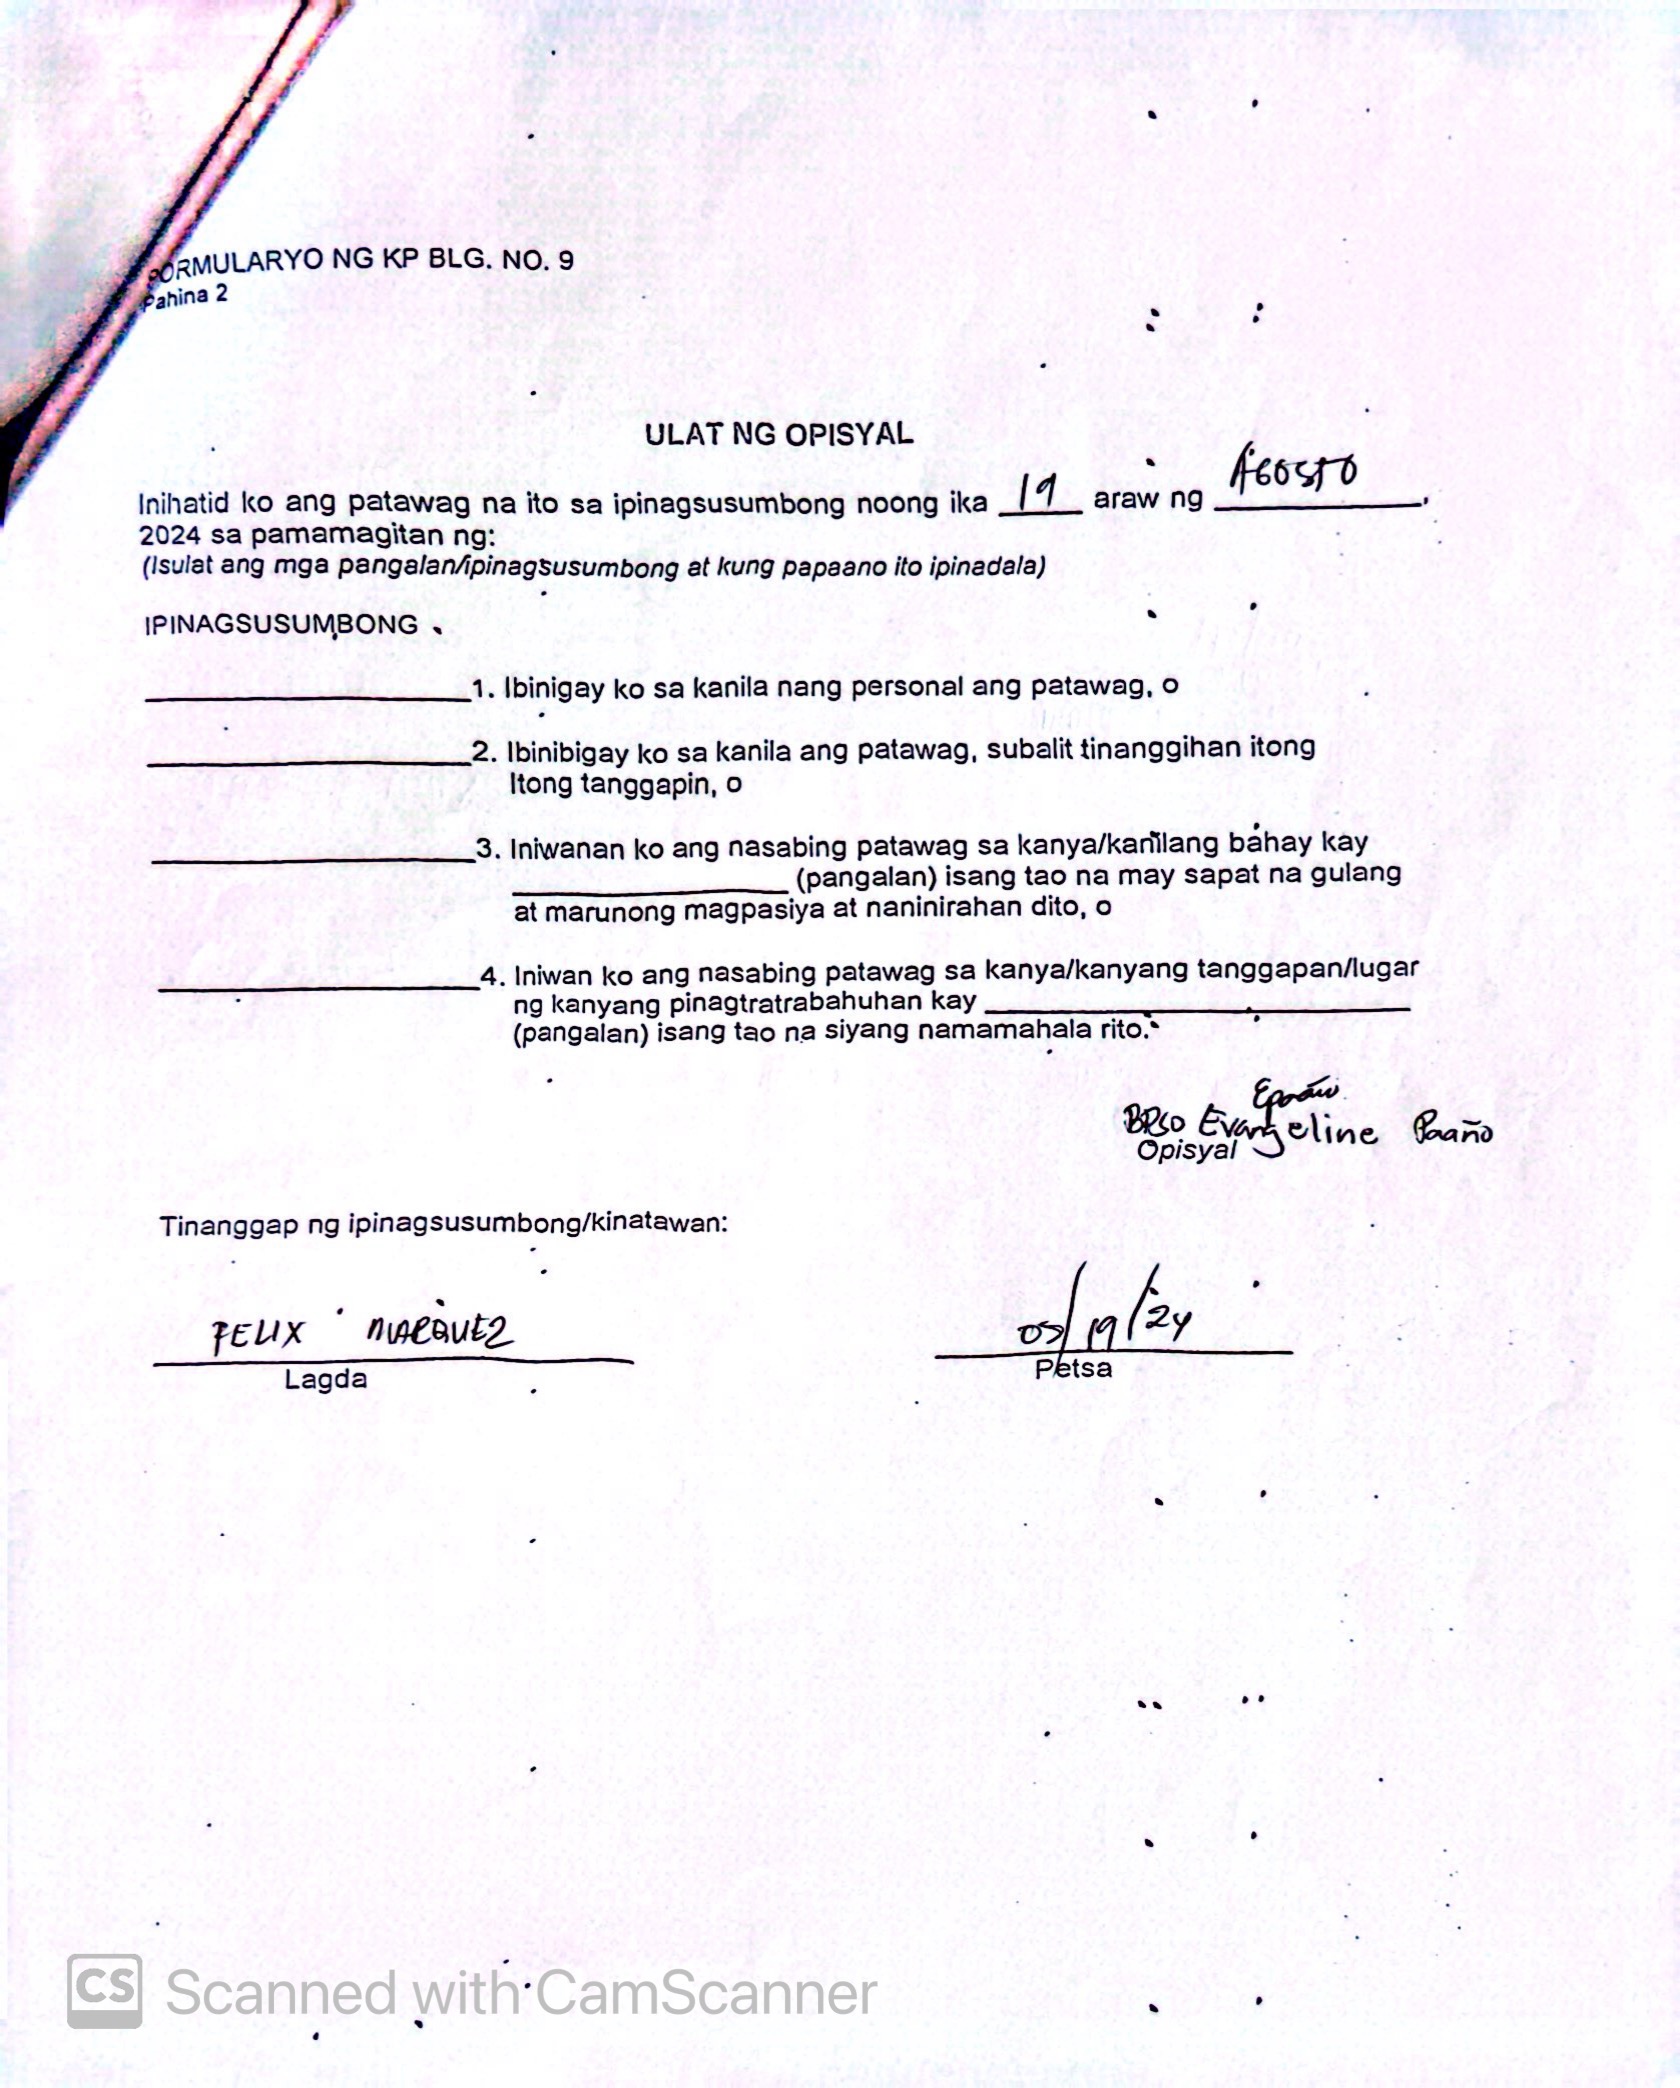 FORMULARYO NG KP BLG. NO. 9
Pahina 2
ULAT NG OPISYAL
Inihatid ko ang patawag na ito sa ipinagsusumbong noong ika 19 araw ng AGOSTO,
2024 sa pamamagitan ng:
(Isulat ang mga pangalan/ipinagsusumbong at kung papaano ito ipinadala)
IPINAGSUSUMBONG
1. Ibinigay ko sa kanila nang personal ang patawag, o
2. Ibinibigay ko sa kanila ang patawag, subalit tinanggihan itong
Itong tanggapin, o
3. Iniwanan ko ang nasabing patawag sa kanya/kanilang bahay kay
(pangalan) isang tao na may sapat na gulang
at marunong magpasiya at naninirahan dito, o
4. Iniwan ko ang nasabing patawag sa kanya/kanyang tanggapan/lugar
ng kanyang pinagtratrabahuhan kay
(pangalan) isang tao na siyang namamahala rito.
BPSO Evangeline Paaño
Opisyal
Tinanggap ng ipinagsusumbong/kinatawan:
FELIX MARQUEZ
Lagda
/19/24
Petsa
CS Scanned with CamScanner